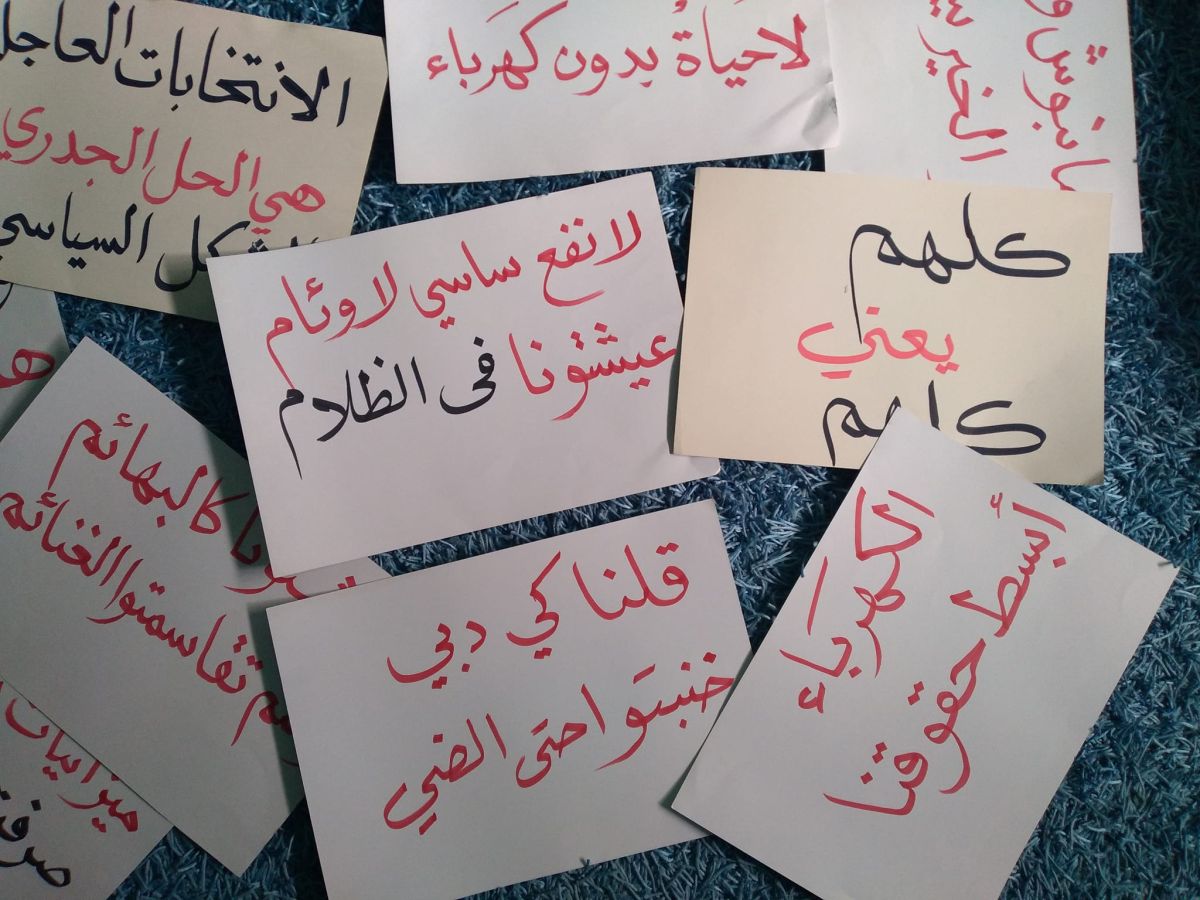 الانتخابات العاجل
هي الحل الجدري
السياسي
لاحياة بدون كهرباء
مانبوش
الخير
لانفع ساسي لاوئام
عيشتونا في الظلام
كلهم
يعني
كلهم
كالبهائم
تقاسمتوا الغنائم
قلنا كي دبي
خنبتوا حتى الضي
أبسط حقوقنا
الكهرباء
ميزانيات
صرفت